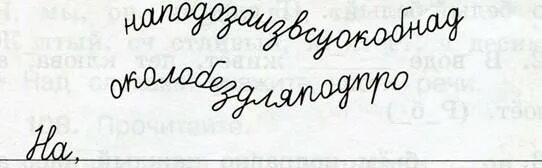 наподозаизвсуокобнад
околобездляподпро
На,